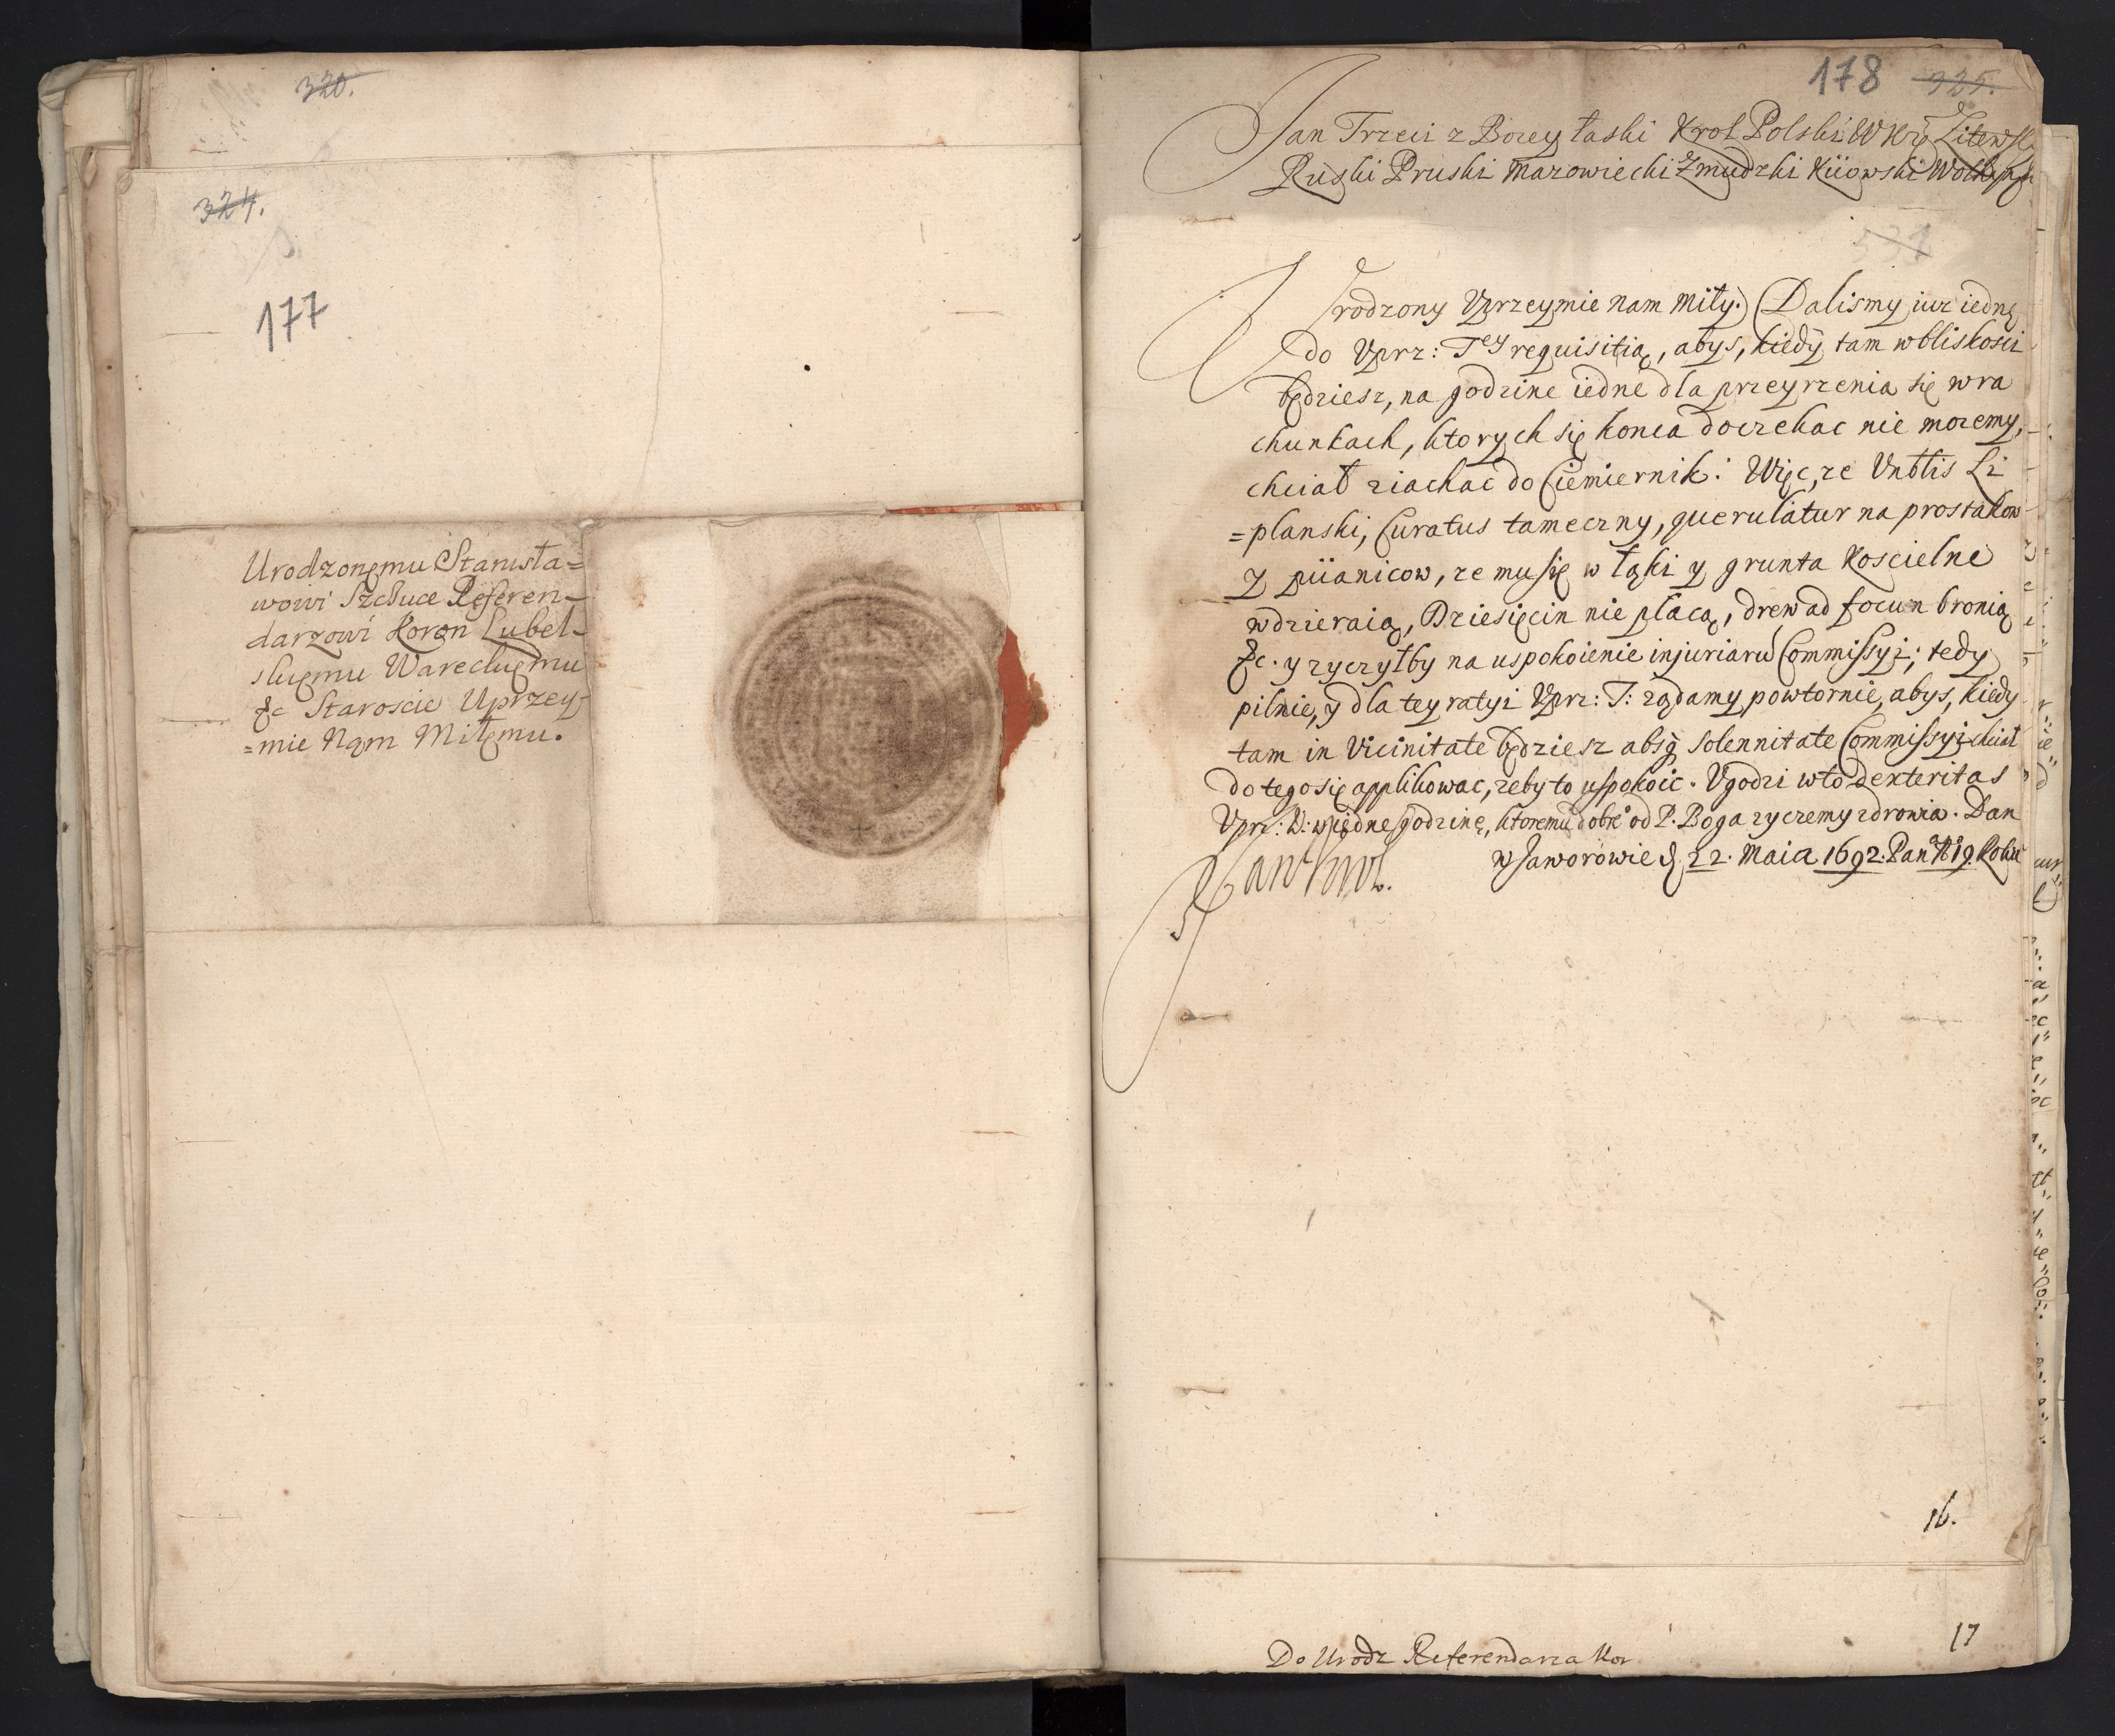 320.
324.
177
Urodzonemu Stanisła=
wowi Szcżuce Referen=
darzowi Koron Lubel=
skiemu Wareckiemu
&c Staroscie Uprzey=
=mie Nam Miłemu.
178 325.
Jan Trzeci z Bozey łaski Krol Polski W Kże Litewski
Ruski Pruski Mazowiecki Zmudzki Kiiowski Wołhynski
531
Urodzony Uprzeymie nam miły. Dalismy iuz iednę
do Uprz: Tey requisitią, abys, kiedy tam w bliskosci
będziesz, na godzine iedne dla przeyrzenia się w ra
chunkach, ktorych się konca doczekac nie mozemy,
chciał ziachac do Ciemiernik: Więc, ze Vnblis Li
=planski, Curatus tameczny, querulatur na prostakow
y piianicow, ze mu się w łąki y grunta Koscielne
wdzieraią, Dziesięcin nie płacą, drew ad focum bronią
&c. y zyczyłby na uspokoienie injuriarū Commissyi; tedy
pilnie, y dla tey ratyi Uprz: T: ządamy powtornie, abys, kiedy
tam in Vicinitate będziesz absq solennitate Commissyi chciał
do tego się applikowac, zeby to uspokoic. Ugodzi w to dexteritas
Uprz: W: w iedne godzinę, ktoremu dobre od P. Boga zyczemy zdrowia. Dan
w Jaworowie d 22. Maia 1692. Pan N 19. Roku
Jan Krol.
16.
17
Do Urodz Referendarza Kor